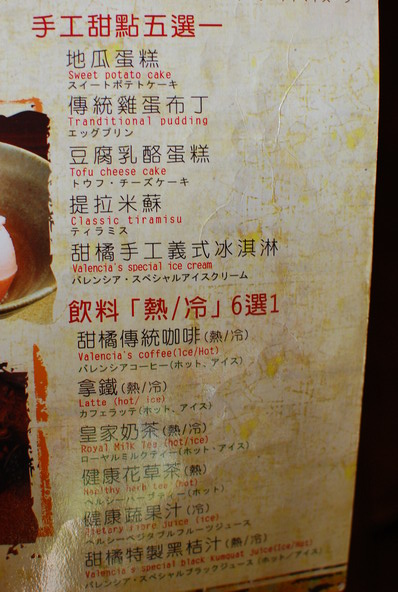 手工甜點五選一
地瓜蛋糕
Sweet potato cake
スイートポテトケーキ
傳統雞蛋布丁
Tranditional pudding
エッグプリン
豆腐乳酪蛋糕
Tofu cheese cake
トウフ・チーズケーキ
提拉米蘇
Classic tiramisu
ティラミス
甜橘手工義式冰淇淋
Valencia's special ice cream
バレンシア・スペシャルアイスクリーム
飲料「熱/冷」6選1
甜橘傳統咖啡(熱/冷)
Valencia's coffee(Ice/Hot)
バレンシアコーヒー(ホット、アイス)
拿鐵(熱/冷)
Latte (hot/ ice)
カフェラッテ(ホット、アイス)
皇家奶茶(熱/冷)
Royal Milk Tea (hot/ice)
ローヤルミルクティー(ホット・アイス)
健康花草茶(熱)
Healthy herb tea (hot)
ヘルシーハーブティー(ホット)
健康蔬果汁(冷)
Dietary fibre Juice (ice)
ヘルシーベジタブルフルーツジュース
甜橘特製黑桔汁(熱/冷)
Valencia's special black kumquat juice(Ice/Hot)
バレンシア・スペシャルブラックジュース(ホット/アイス)